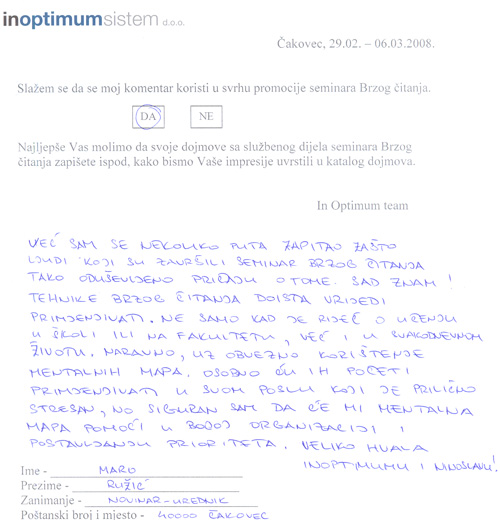 inoptimumsistem d.o.o.
Čakovec, 29.02. – 06.03.2008.
Slažem se da se moj komentar koristi u svrhu promocije seminara Brzog čitanja.
DA NE
Najljepše Vas molimo da svoje dojmove sa službenog dijela seminara Brzog
čitanja zapišete ispod, kako bismo Vaše impresije uvrstili u katalog dojmova.
In Optimum team
VEĆ SAM SE NEKOLIKO PUTA ZAPITAO ZAŠTO
LJUDI KOJI SU ZAVRŠILI SEMINAR BRZOG ČITANJA
TAKO ODUŠEVLJENO PRIČAJU O TOME. SAD ZNAM!
TEHNIKE BRZOG ČITANJA DOISTA VRIJEDI
PRIMJENJIVATI. NE SAMO KAD JE RIJEČ O UČENJU
U ŠKOLI ILI NA FAKULTETU, VEĆ I U SVAKODNEVNOM
ŽIVOTU. NARAVNO, UZ OBVEZNO KORIŠTENJE
MENTALNIH MAPA. OSOBNO ĆU IH POČETI
PRIMJENJIVATI U SVOM POSLU KOJI JE PRILIČNO
STRESAN, NO SIGURAN SAM DA ĆE MI MENTALNA
MAPA POMOĆI U BOLJOJ ORGANIZACIJI I
POSTAVLJANJU PRIORITETA. VELIKO HVALA
INOPTIMUMU I NINOSLAVU!
Ime - MARO
Prezime - RUŽIĆ
Zanimanje - NOVINAR-UREDNIK
Poštanski broj i mjesto - 40000 ČAKOVEC